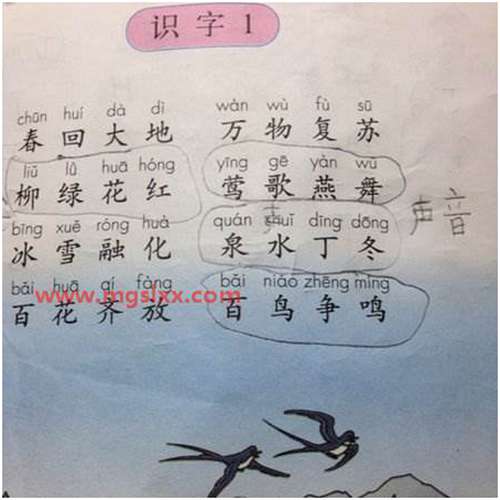 识字1
chūn huí dà dì wàn wù fù sū
春回大地 万物复苏
liǔ lǜ huā hóng yīng gē yàn wǔ
柳绿花红 莺歌燕舞
声音
bīng xuě róng huà quán shuǐ dīng dōng
冰雪融化 泉水丁冬
bǎi huā qí fàng bǎi niǎo zhēng míng
www.mgsixx.com
百花齐放 百鸟争鸣